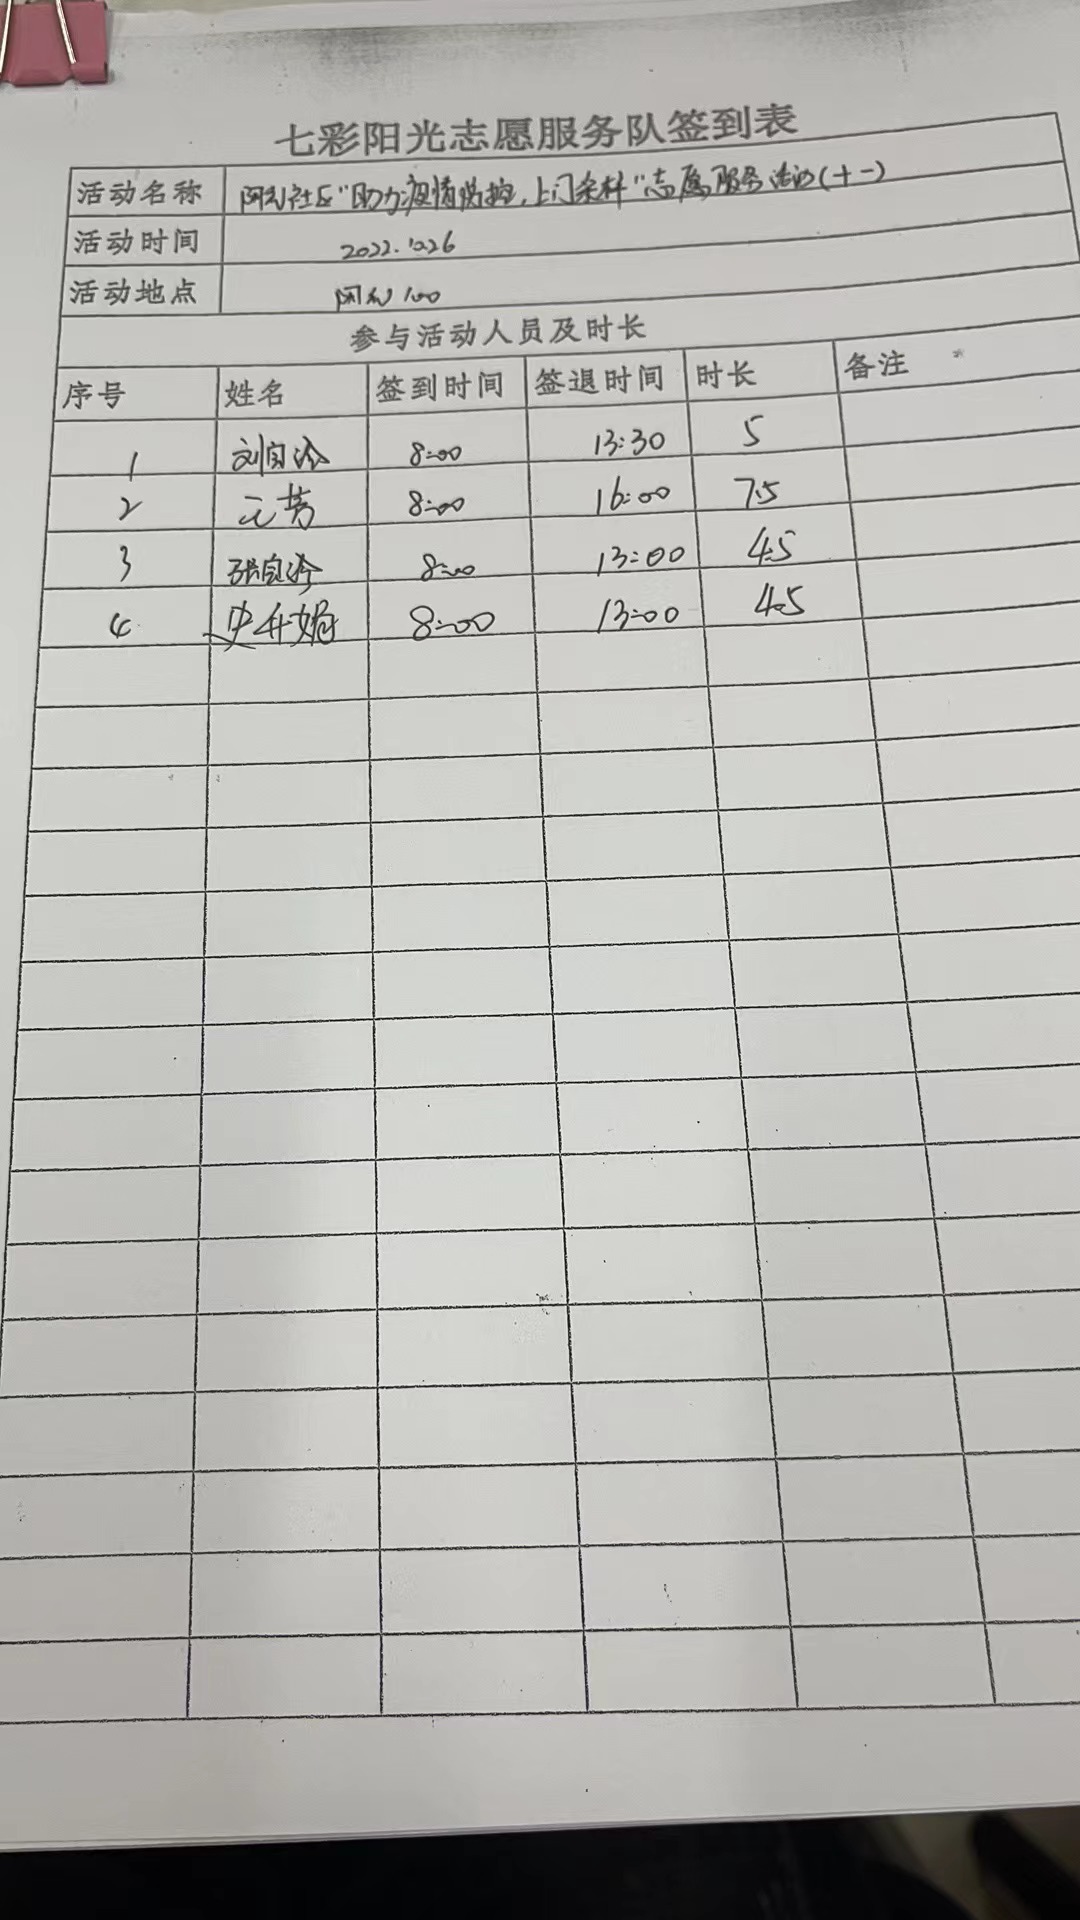 七彩阳光志愿服务队签到表
活动名称 社区"助力疫情防控,上门采样"志愿服务活动(十一)
活动时间 2022.10.26
活动地点 100
参与活动人员及时长
序号 姓名 签到时间 签退时间 时长 备注
1 8:00 13:30 5
2 元芳 8:00 16:00 7.5
3 8:00 13:00 4.5
4 8:00 13:00 4.5